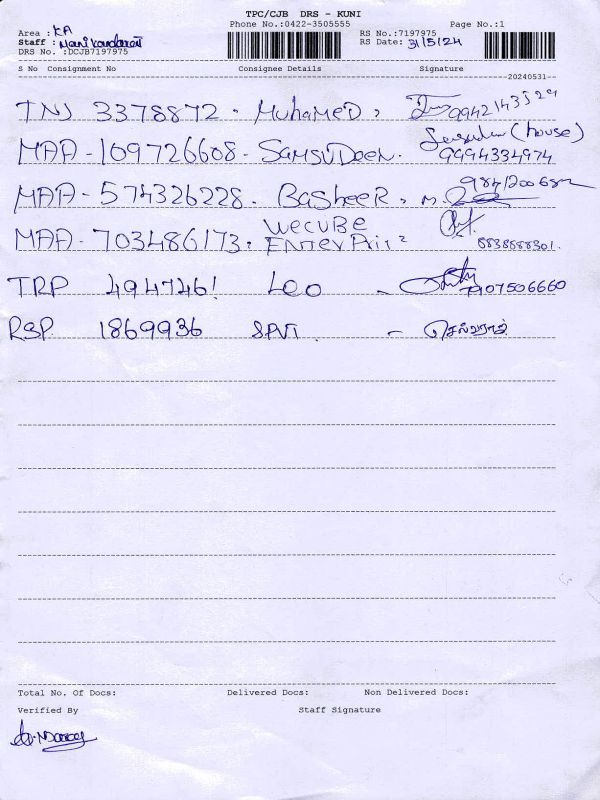 TPC/CJB DRS - KUNI
Phone No.:0422-3505555 Page No.:1
Area : KA
Staff : Manikandan
RS No.:7197975
RS Date: 31/5/24
DRS No. :DCJB7197975
S No Consignment No Consignee Details Signature
20240531
TNJ 3378872. MUhaMeD,
MAA-109726608. SAMSUDeen. (house)
9994334974
MAA-574326228. BaSheeR,
MAA-703486173. WeCUBe
8838588301.
TRP 4947461 Leo - 7907506660
RSP. 1869936 -
Total No. Of Docs: Delivered Docs: Non Delivered Docs:
Verified By Staff Signature